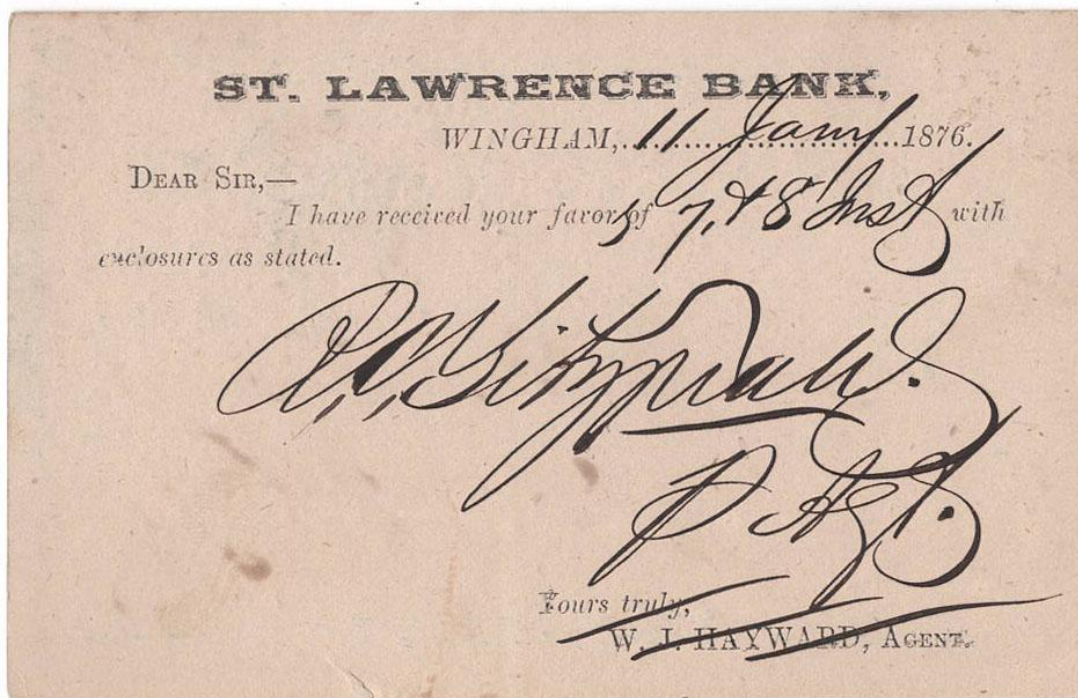 ST. LAWRENCE BANK,
WINGHAM, 11 Jany 1876.
DEAR SIR,—
I have received your favor of 5 7, & 8 Inst with
enclosures as stated.
Fitzgerald.
P Agt.
Yours truly,
W. J. HAYWARD, AGENT.